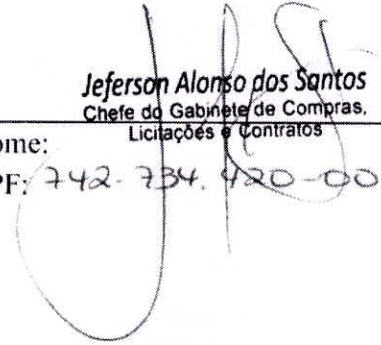 Jeferson Alonso dos Santos
Chefe do Gabinete de Compras,
Licitações e Contratos
ome:
PF: 742-734.420-00